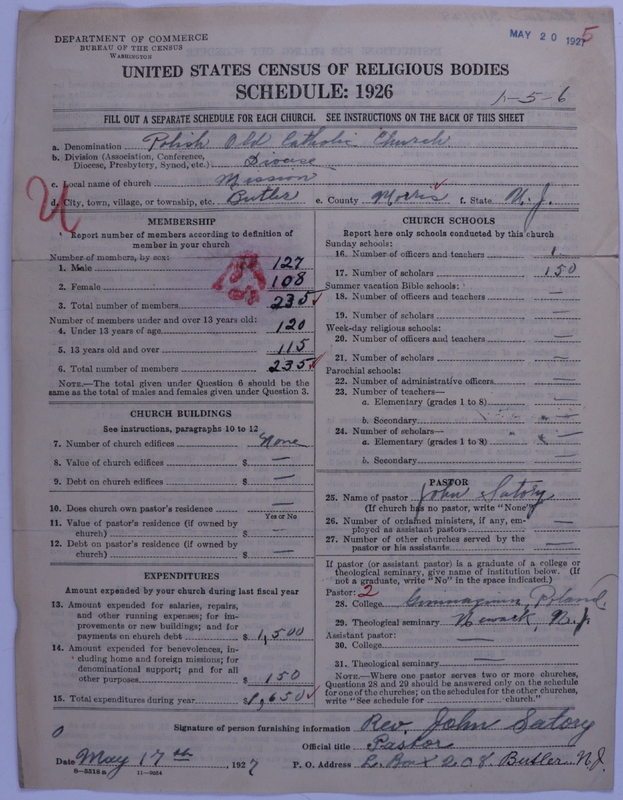 DEPARTMENT OF COMMERCE
BUREAU OF THE CENSUS
WASHINGTON
MAY 20 1927 5
UNITED STATES CENSUS OF RELIGIOUS BODIES
SCHEDULE: 1926
1-5-6
FILL OUT A SEPARATE SCHEDULE FOR EACH CHURCH. SEE INSTRUCTIONS ON THE BACK OF THIS SHEET
a. Denomination Polish Old Catholic Church
b. Division (Association, Conference, Diocese, Presbytery, Synod, etc.) Diocese
c. Local name of church Mission
d. City, town, village, or township, etc. Butler e. County Morris f. State N.J.
MEMBERSHIP
Report number of members according to definition of
member in your church
Number of members, by sex:
1. Male 127
2. Female 108
3. Total number of members 235
Number of members under and over 13 years old:
4. Under 13 years of age 120
5. 13 years old and over 115
6. Total number of members 235
NOTE.—The total given under Question 6 should be the
same as the total of males and females given under Question 3.
CHURCH BUILDINGS
See instructions, paragraphs 10 to 12
7. Number of church edifices None
8. Value of church edifices $ —
9. Debt on church edifices $ —
10. Does church own pastor's residence —
Yes or No
11. Value of pastor's residence (if owned by
church) $ —
12. Debt on pastor's residence (if owned by
church) $ —
EXPENDITURES
Amount expended by your church during last fiscal year
13. Amount expended for salaries, repairs,
and other running expenses; for im-
provements or new buildings; and for
payments on church debt $ 1,500
14. Amount expended for benevolences, in-
cluding home and foreign missions; for
denominational support; and for all
other purposes $ 150
15. Total expenditures during year $ 1,650
CHURCH SCHOOLS
Report here only schools conducted by this church
Sunday schools:
16. Number of officers and teachers 1
17. Number of scholars 150
Summer vacation Bible schools:
18. Number of officers and teachers —
19. Number of scholars —
Week-day religious schools:
20. Number of officers and teachers —
21. Number of scholars —
Parochial schools:
22. Number of administrative officers —
23. Number of teachers—
a. Elementary (grades 1 to 8) —
b. Secondary —
24. Number of scholars—
a. Elementary (grades 1 to 8) —
b. Secondary —
PASTOR
25. Name of pastor John Satory
(If church has no pastor, write "None")
26. Number of ordained ministers, if any, em-
ployed as assistant pastors —
27. Number of other churches served by the
pastor or his assistants —
If pastor (or assistant pastor) is a graduate of a college or
theological seminary, give name of institution below. (If
not a graduate, write "No" in the space indicated.)
Pastor: 2
28. College Gimnazium Poland
29. Theological seminary Newark, N.J.
Assistant pastor:
30. College —
31. Theological seminary —
NOTE.—Where one pastor serves two or more churches,
Questions 28 and 29 should be answered only on the schedule
for one of the churches; on the schedules for the other churches,
write "See schedule for church."
Signature of person furnishing information Rev. John Satory
Official title Pastor
Date May 17th, 1927 P. O. Address L. Box 208. Butler N.J.
8—5518a 11—9664